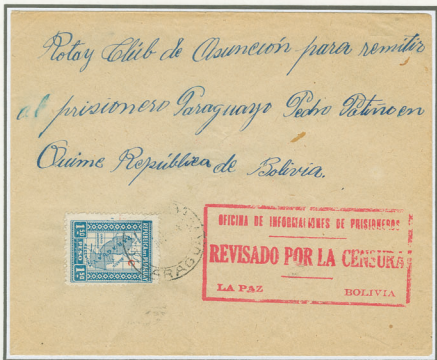 Rotay Club de Asunción para remitir
al prisionero Paraguayo Pedro Patiño en
Quime República de Bolivia.
OFICINA DE INFORMACIONES DE PRISIONEROS
REVISADO POR LA CENSURA
LA PAZ BOLIVIA
REPUBLICA DEL PARAGUAY
1½ PESO 1½
PARAGUAY